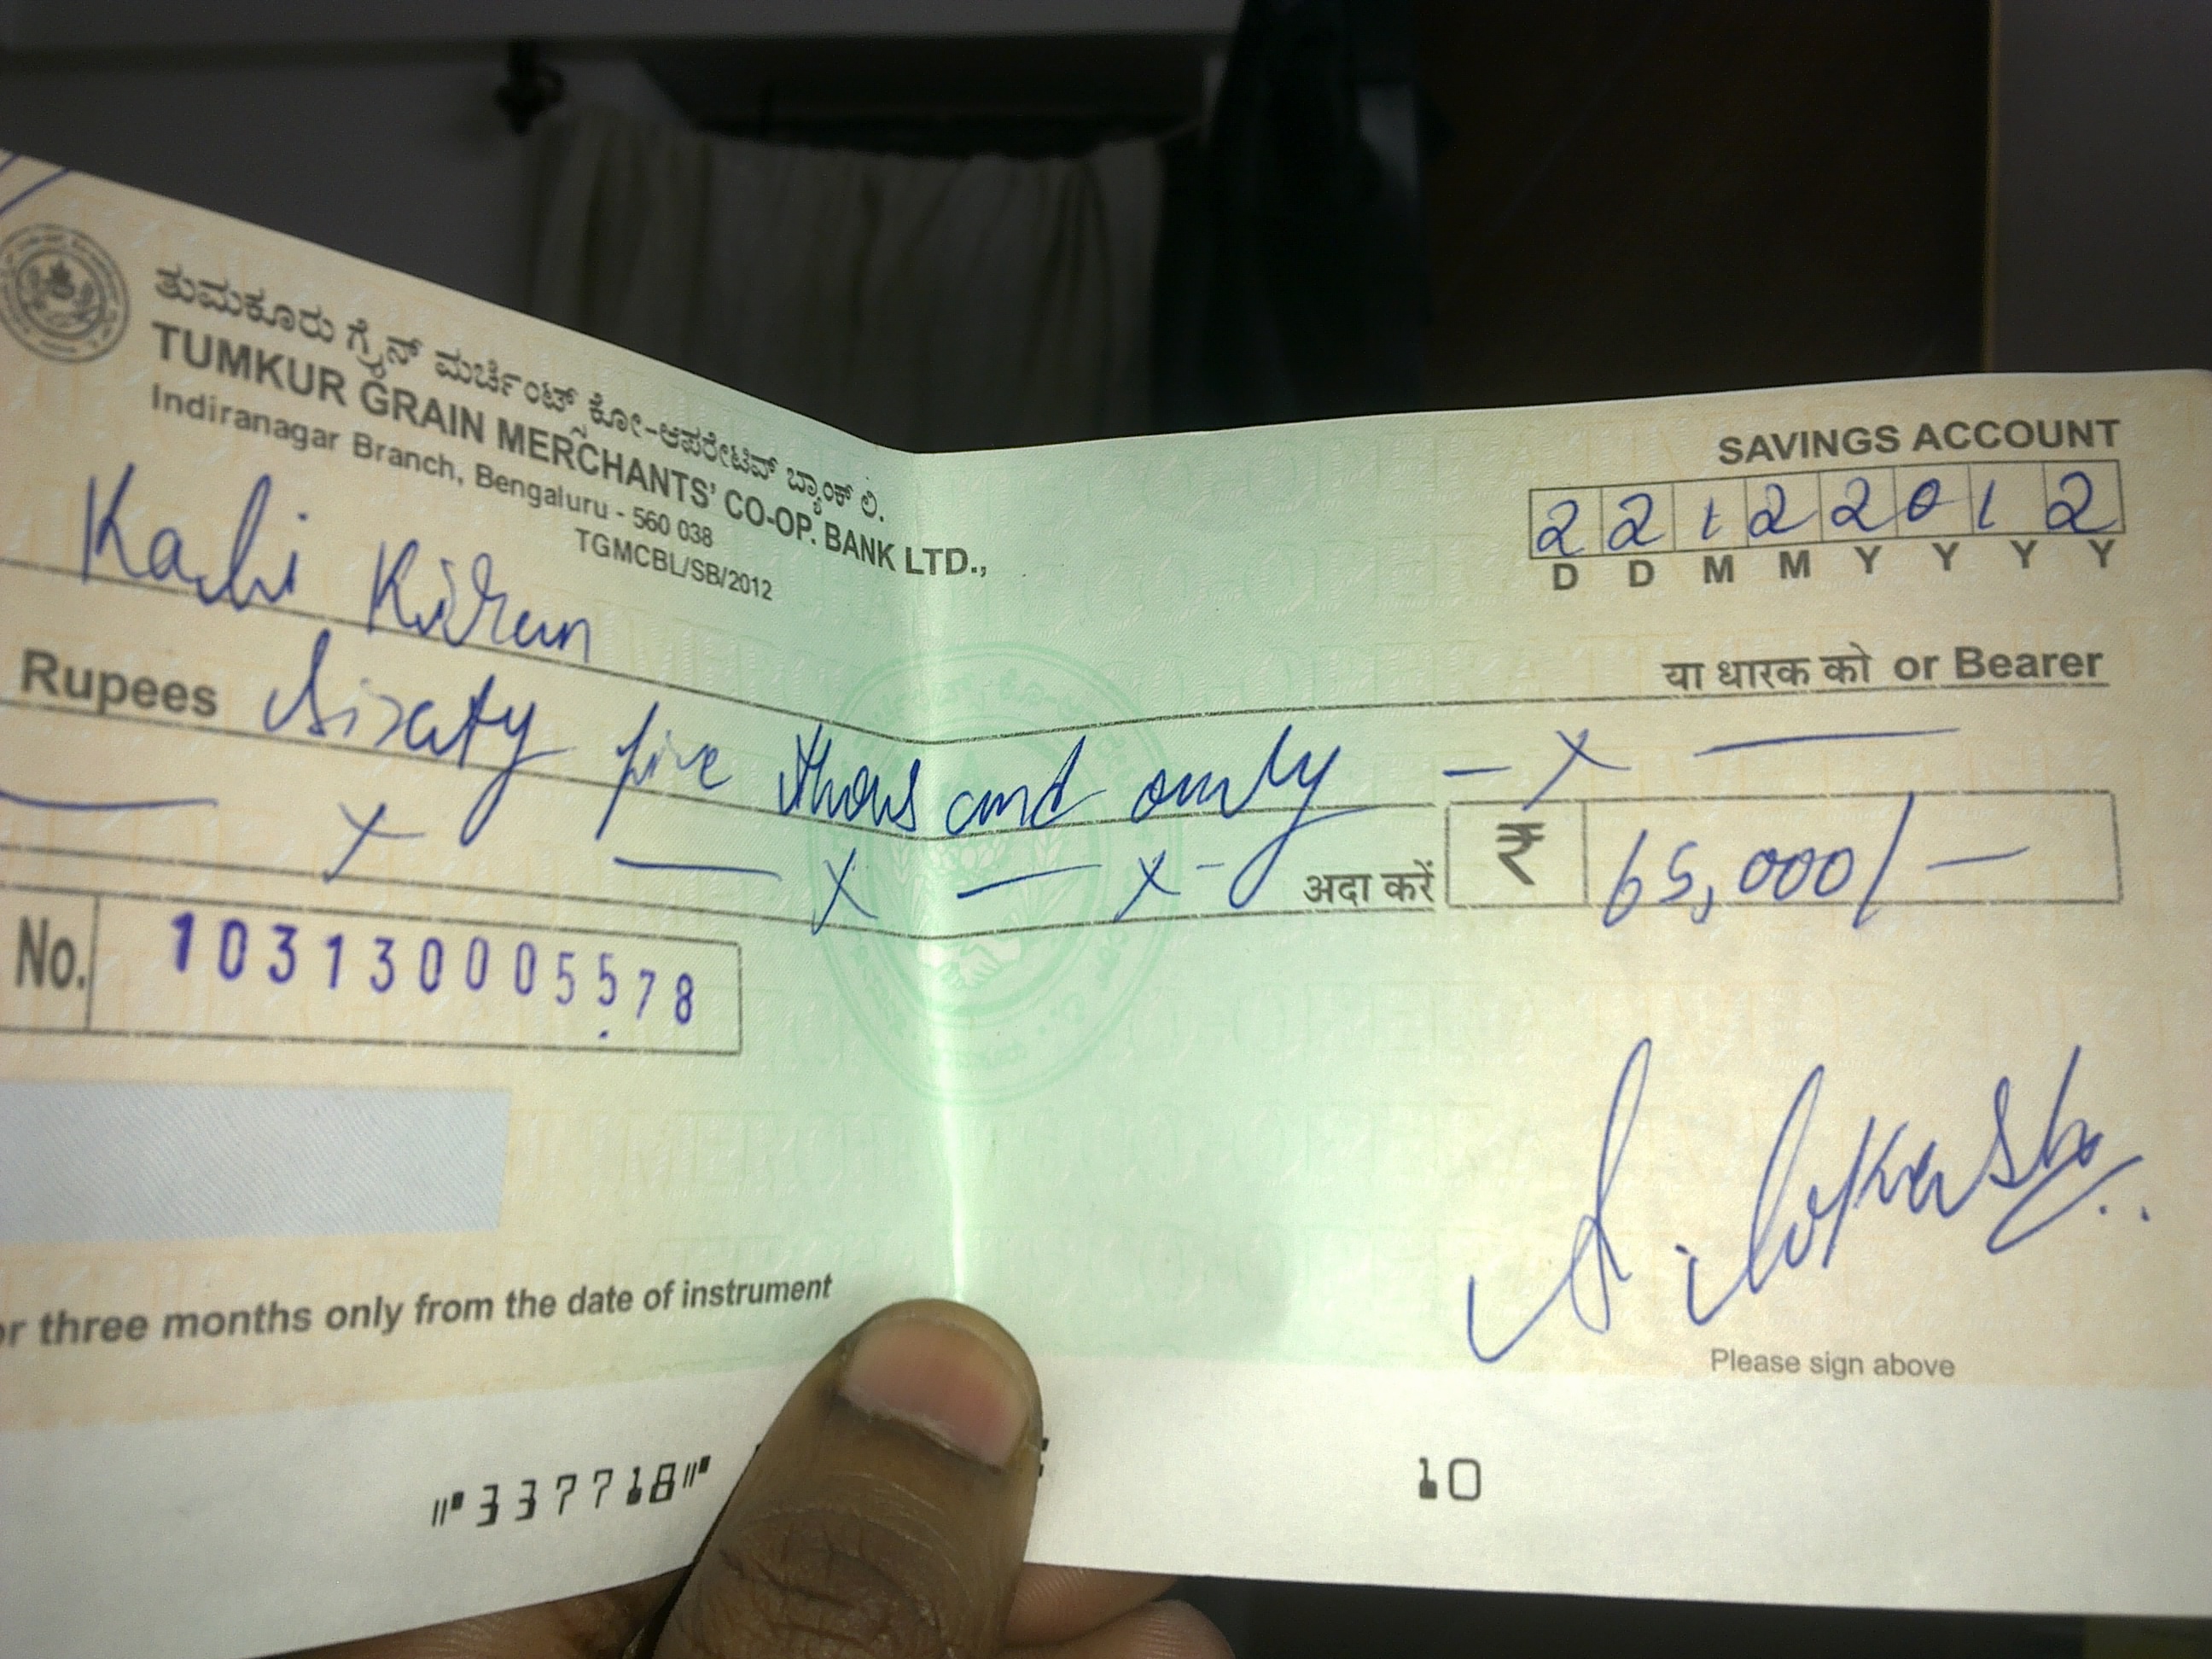 ತುಮಕೂರು ಗ್ರೈನ್ ಮರ್ಚೆಂಟ್ಸ್ ಕೋ-ಆಪರೇಟಿವ್ ಬ್ಯಾಂಕ್ ಲಿ.
TUMKUR GRAIN MERCHANTS' CO-OP. BANK LTD.,
Indiranagar Branch, Bengaluru - 560 038
TGMCBL/SB/2012
SAVINGS ACCOUNT
2 2 1 2 2 0 1 2
D D M M Y Y Y Y
Kiran
या धारक को or Bearer
Rupees Sixaty five thousand only
अदा करें ₹ 65,000/-
No. 103130005578
or three months only from the date of instrument
Please sign above
⑈337718⑈
10